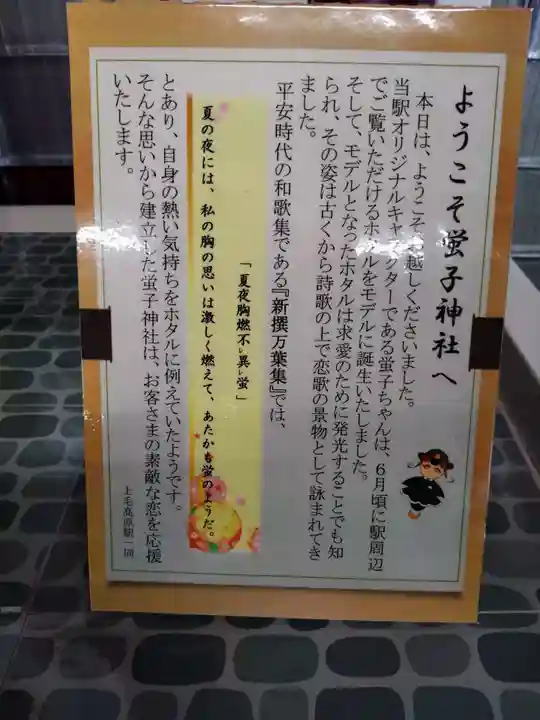 ようこそ蛍子神社へ
本日は、ようこそお越しくださいました。
当駅オリジナルキャラクターである蛍子ちゃんは、6月頃に駅周辺
でご覧いただけるホタルをモデルに誕生いたしました。
そして、モデルとなったホタルは求愛のために発光することでも知
られ、その姿は古くから詩歌の上で恋歌の景物として詠まれてき
ました。
平安時代の和歌集である『新撰万葉集』では、
「夏夜胸燃不レ異レ蛍」
夏の夜には、私の胸の思いは激しく燃えて、あたかも蛍のようだ。
とあり、自身の熱い気持ちをホタルに例えていたようです。
そんな思いから建立した蛍子神社は、お客さまの素敵な恋を応援
いたします。
上毛高原駅一同